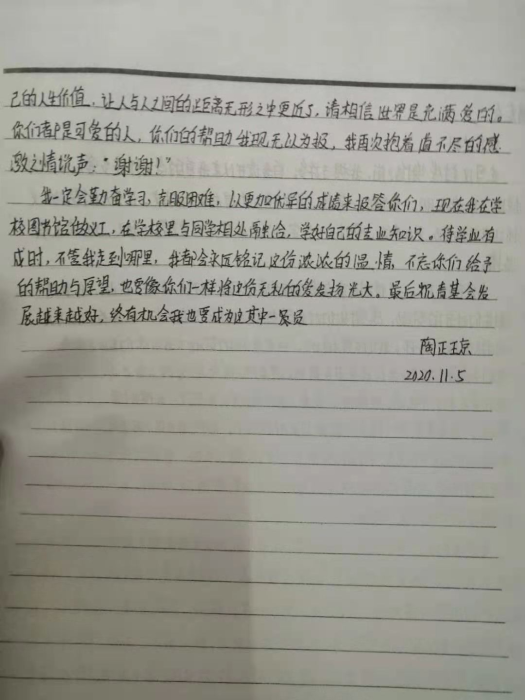 己的人生价值，让人与人之间的距离无形之中更近了，请相信世界是充满爱的。
你们都是可爱的人，你们的帮助我现无以为报，我再次抱着道不尽的感
激之情说声："谢谢！"
我一定会勤奋学习，克服困难，以更加优异的成绩来报答你们，现在我在学
校图书馆做义工，在学校里与同学相处融洽，学好自己的专业知识。待学业有
成时，不管我走到哪里，我都会永远铭记这份浓浓的温情，不忘你们给予
的帮助与厚望，也要像你们一样将这份无私的爱发扬光大。最后祝青基会发
展越来越好，终有机会我也要成为这其中一员
陶正京
2020.11.5